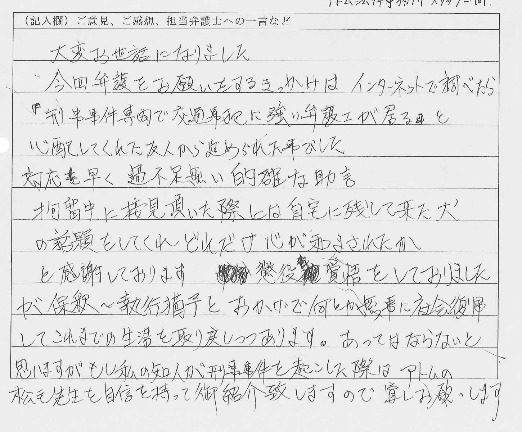 (記入欄)ご意見、ご感想、担当弁護士への一言など
大変お世話になりました
今回弁護をお願いするきっかけは インターネットで調べたら
刑事事件専門で交通事犯に強い弁護士が居ると
心配してくれた友人から進められた事でした
対応も早く 過不足無い的確な助言
拘留中に接見頂いた際には自宅に残して来た犬
の話題をしてくれ どれだけ心が和まされたか
と感謝しております 懲役 覚悟をしておりました
が 保釈～執行猶予と おかげで何とか無事に社会復帰
してこれまでの生活を取り戻しつつあります。あってはならないと
思いますがもし私の知人が刑事事件を起こした際は アトムの
松毛先生を自信を持って御紹介致しますので宜しお願いします